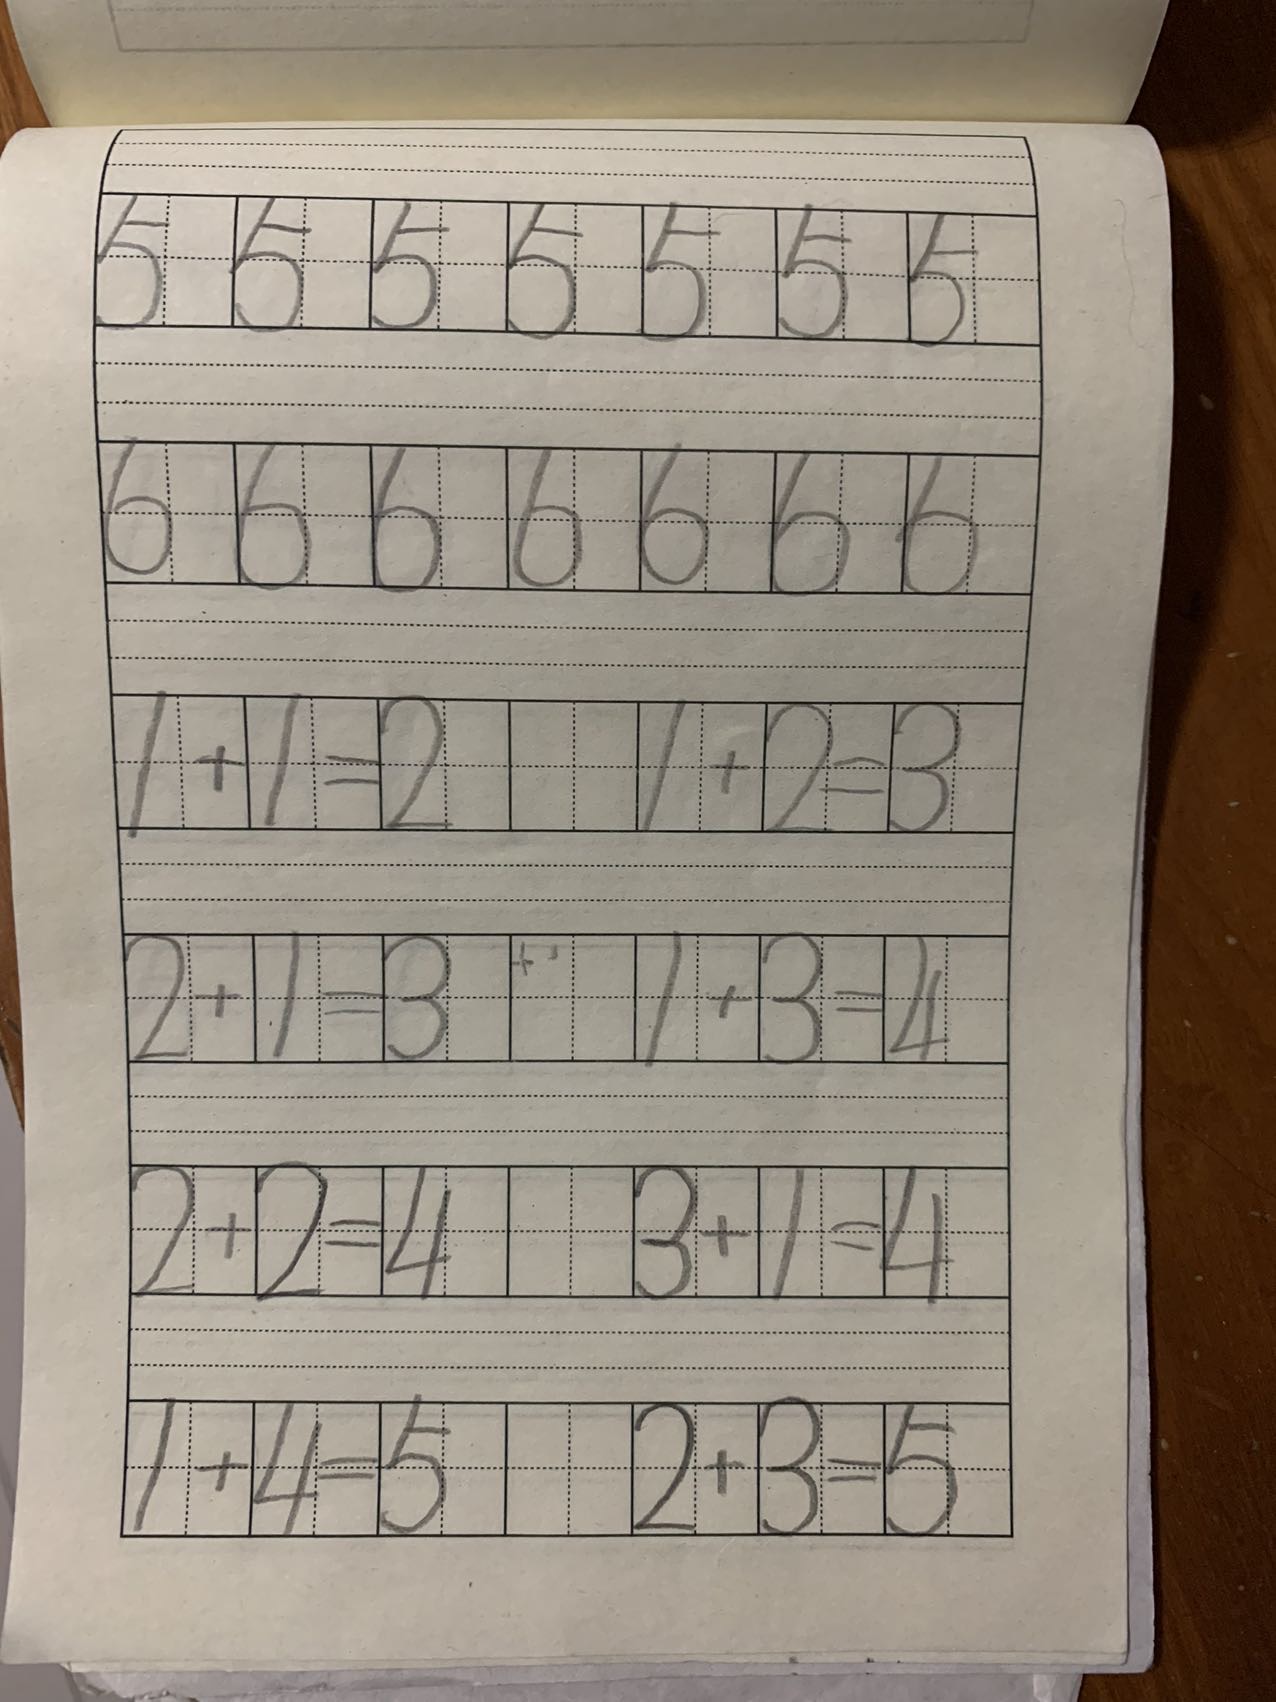 5 5 5 5 5 5 5
6 6 6 6 6 6 6
1+1=2 1+2=3
2+1=3 1+3=4
2+2=4 3+1=4
1+4=5 2+3=5